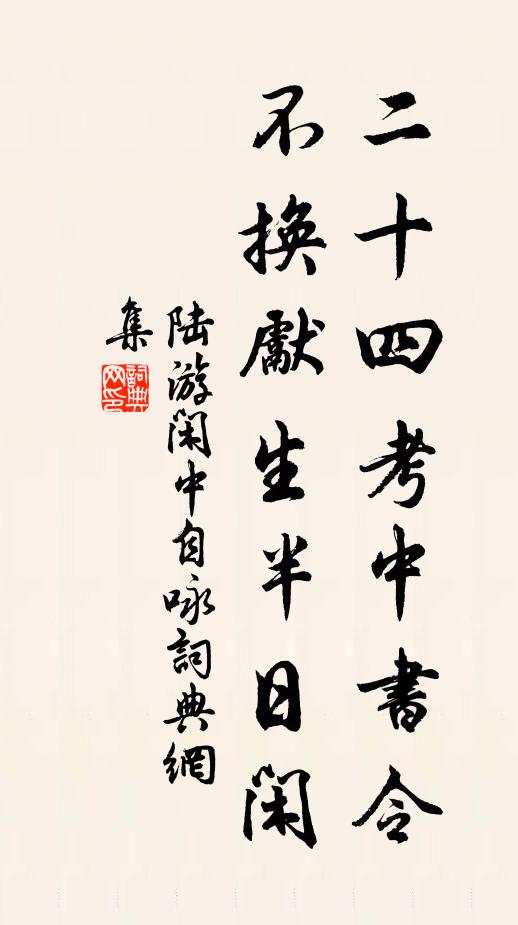 二十四考中書令
不換獻生半日閑
陸游閑中自咏詞典網
集
詞典
网印